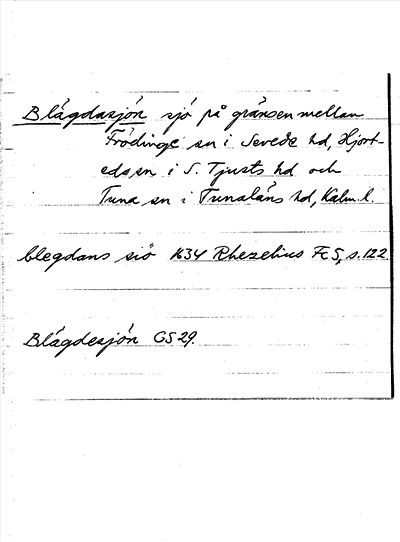 Blägdasjön sjö på gränsen mellan
Frödinge sn i Sevede hd, Hjort-
eds sn i S. Tjusts hd och
Tuna sn i Tunaläns hd, Kalm. l.
blegdans siö 1634 Rhezelius Fc 5, s. 122
Blägdesjön GS 29.